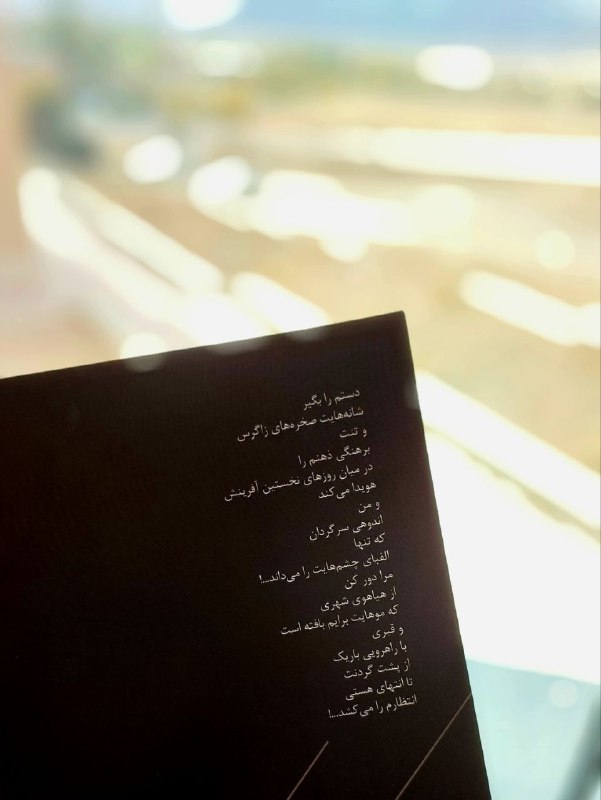 دستم را بگیر
شانه‌هایت صخره‌های زاگرس
و تنت
برهنگی ذهنم را
در میان روزهای نخستین آفرینش
هویدا می‌کند
و من
اندوهی سرگردان
که تنها
الفبای چشم‌هایت را می‌داند...!
مرا دور کن
از هیاهوی شهری
که موهایت برایم بافته است
و قبری
با راهرویی باریک
از پشت گردنت
تا انتهای هستی
انتظارم را می‌کشد...!